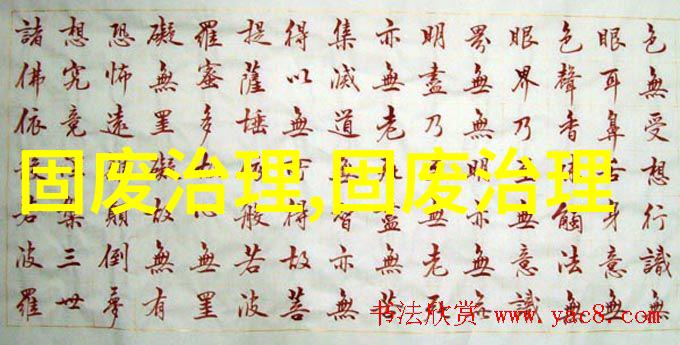 色無受想行識無
眼耳鼻舌身意無
色聲香味觸法無
眼界乃無意識
界無無明亦無
明盡乃無老死
亦無老死盡無苦
集滅道無智亦無
得以無所得故菩
提薩埵般若波
羅蜜多心無罣
礙無罣礙故無有
恐怖遠顛倒夢
想究竟三世
諸佛依般若波羅
固废治理,固废治理
书法欣赏 www.yac8.com